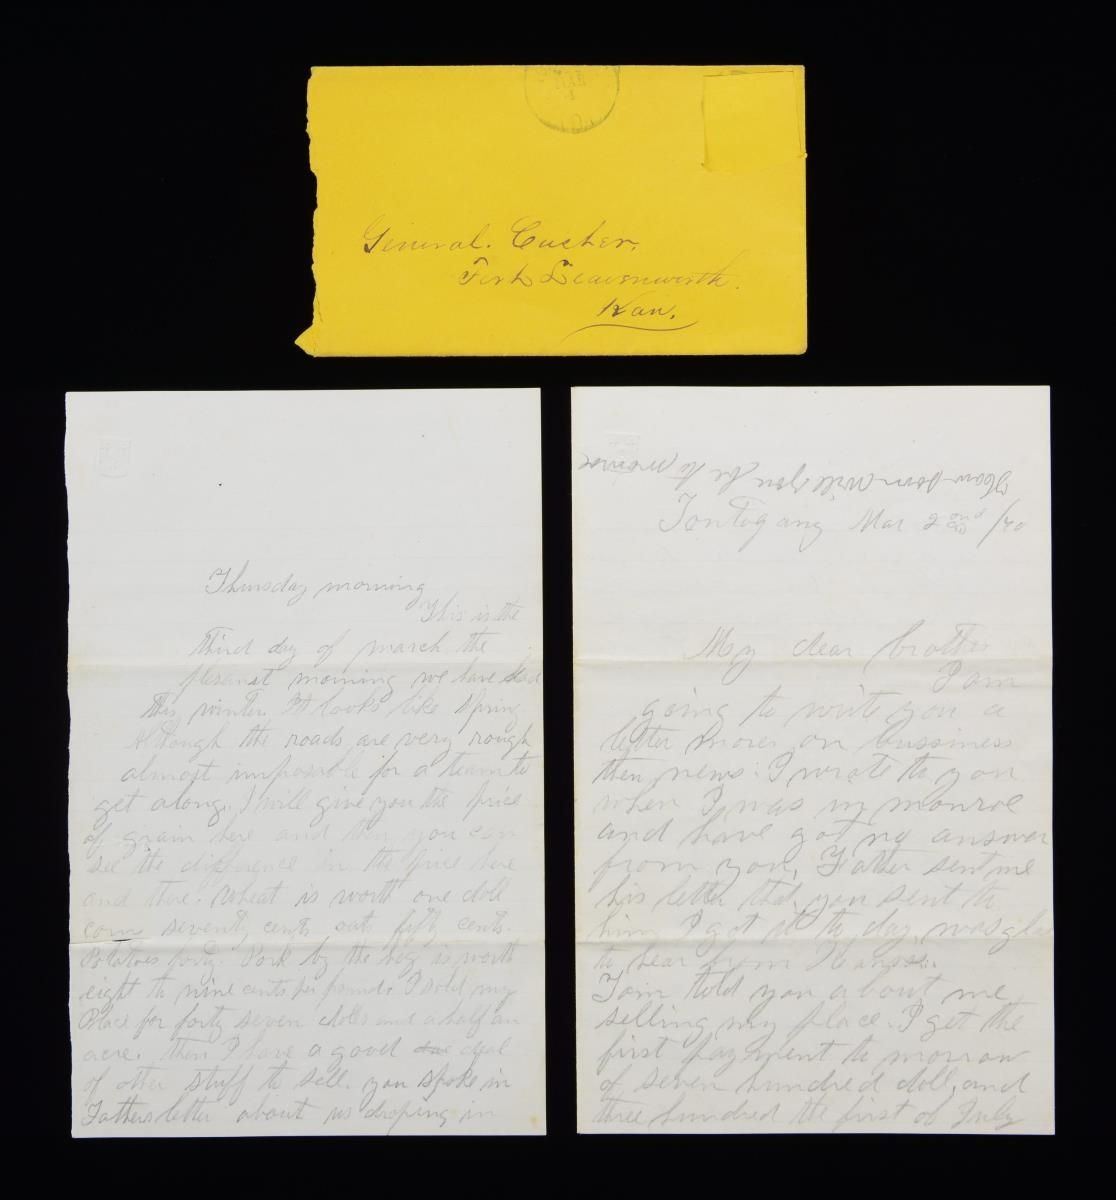 General. Custer,
Fort Leavenworth.
Kan.
How soon will you be to monroe
Tontogany Mar 2nd /70
My dear brother
I am
going to write you a
letter more on bussiness
then news. I wrote to you
when I was in monroe
and have got no answer
from you. Father sent me
his letter that you sent to
him I got it to day was glad
to hear from Kansas.
Tom told you about me
selling my place. I get the
first payment to morrow
of seven hundred doll, and
three hundred the first of July
Thursday morning
This is the
third day of march the
plesanst morning we have had
this winter. It looks like spring
Although the roads are very rough
almost imposable for a team to
get along. I will give you the price
of grain here and then you can
see the difference in the price here
and there. Wheat is worth one doll
corn seventy cents oats fifty cents.
Potatoes forty. Pork by the hog is worth
eight to nine cents per pound. I sold my
Place for forty seven dolls and a half an
acre. then I have a good deal
of other stuff to sell. you spoke in
Fathers letter about us droping in